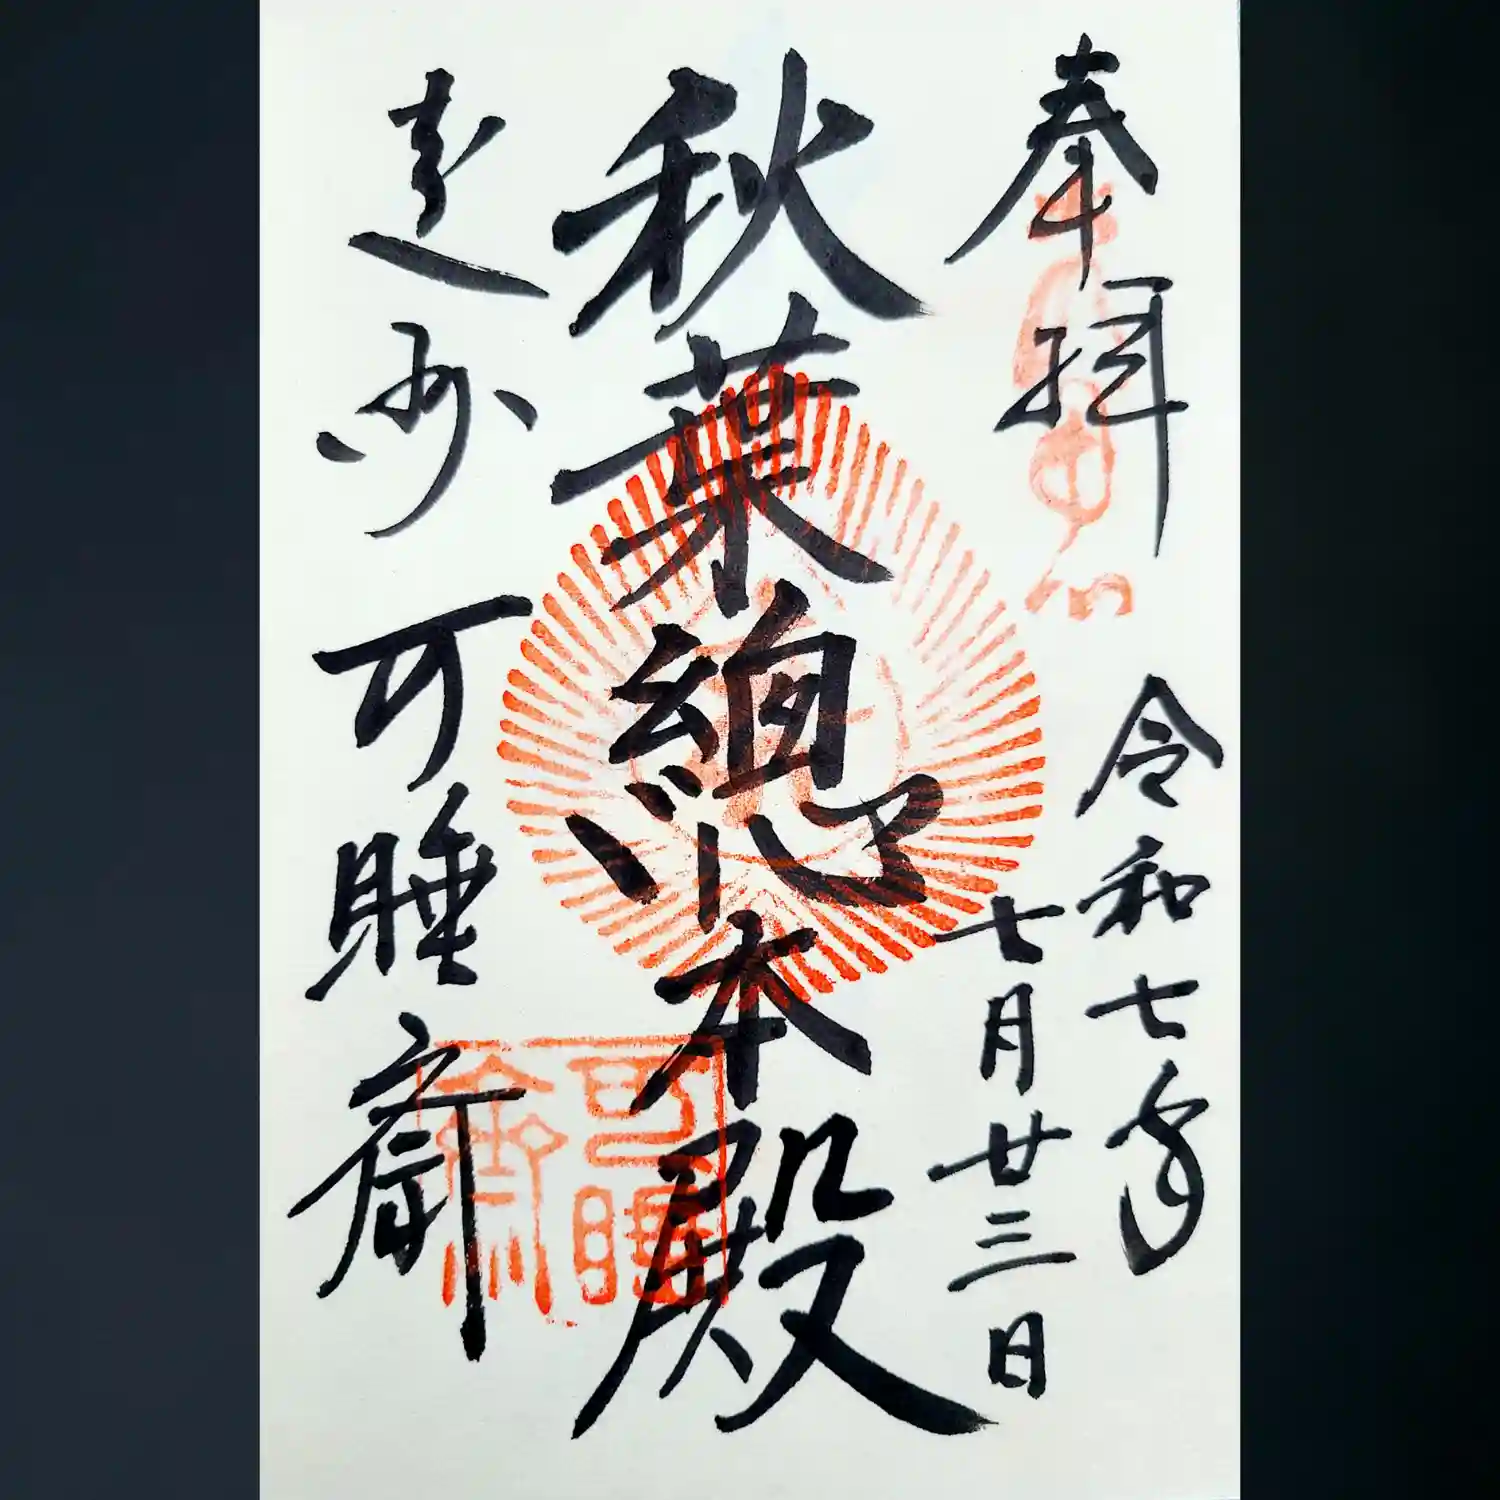 奉拝
令和七年
七月廿三日
秋葉總本殿
遠州可睡齋
可睡
齋